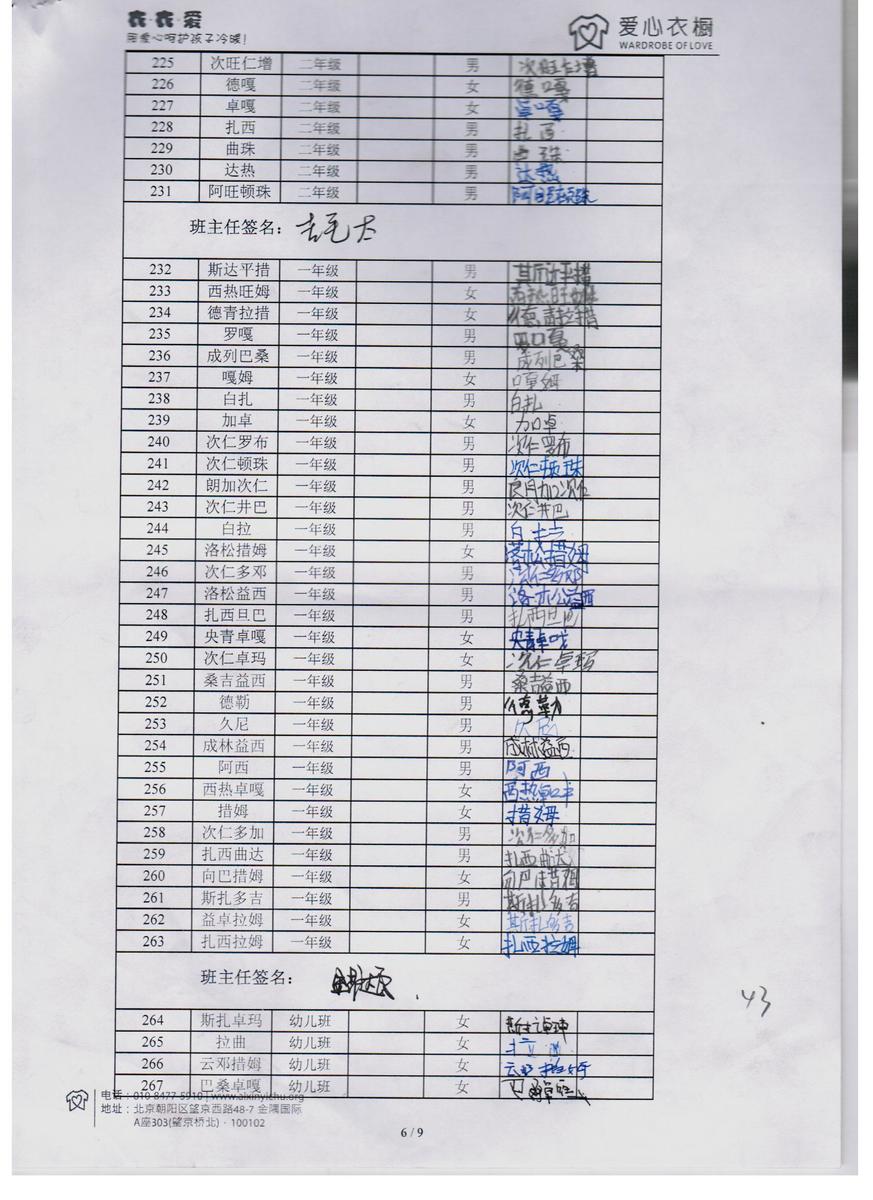 衣·衣·爱
用爱心呵护孩子冷暖!
爱心衣橱
WARDROBE OF LOVE
225 次旺仁增 二年级 男 次旺仁增
226 德嘎 二年级 女 德嘎
227 卓嘎 二年级 女 卓嘎
228 扎西 二年级 男 扎西
229 曲珠 二年级 男 曲珠
230 达热 二年级 男 达热
231 阿旺顿珠 二年级 男 阿旺顿珠
班主任签名:
232 斯达平措 一年级 男 其斤达平措
233 西热旺姆 一年级 女 西热旺姆
234 德青拉措 一年级 女 德青拉措
235 罗嘎 一年级 男 罗嘎
236 成列巴桑 一年级 男 成列巴桑
237 嘎姆 一年级 女 嘎姆
238 白扎 一年级 男 白扎
239 加卓 一年级 女 加卓
240 次仁罗布 一年级 男 次仁罗布
241 次仁顿珠 一年级 男 次仁顿珠
242 朗加次仁 一年级 男 朗加次仁
243 次仁井巴 一年级 男 次仁井巴
244 白拉 一年级 男 白
245 洛松措姆 一年级 女 洛松措姆
246 次仁多邓 一年级 男 次仁多邓
247 洛松益西 一年级 男 洛松益西
248 扎西旦巴 一年级 男 扎西旦巴
249 央青卓嘎 一年级 女 央青卓
250 次仁卓玛 一年级 女 次仁卓玛
251 桑吉益西 一年级 男 桑吉益西
252 德勒 一年级 男 德勒
253 久尼 一年级 男 久尼
254 成林益西 一年级 男 成林益西
255 阿西 一年级 男 阿西
256 西热卓嘎 一年级 女 西热卓
257 措姆 一年级 女 措姆
258 次仁多加 一年级 男 次仁多加
259 扎西曲达 一年级 男 扎西曲达
260 向巴措姆 一年级 女 向巴措姆
261 斯扎多吉 一年级 男 斯扎多吉
262 益卓拉姆 一年级 女 斯扎多吉
263 扎西拉姆 一年级 女 扎西拉姆
班主任签名:
43
264 斯扎卓玛 幼儿班 女
265 拉曲 幼儿班 女 拉
266 云邓措姆 幼儿班 女 云邓措姆
267 巴桑卓嘎 幼儿班 女
电话:010 8477 5910 | www.aixinyichu.org
地址:北京朝阳区望京西路48-7 金隅国际
A座303(望京桥北)·100102
6 / 9